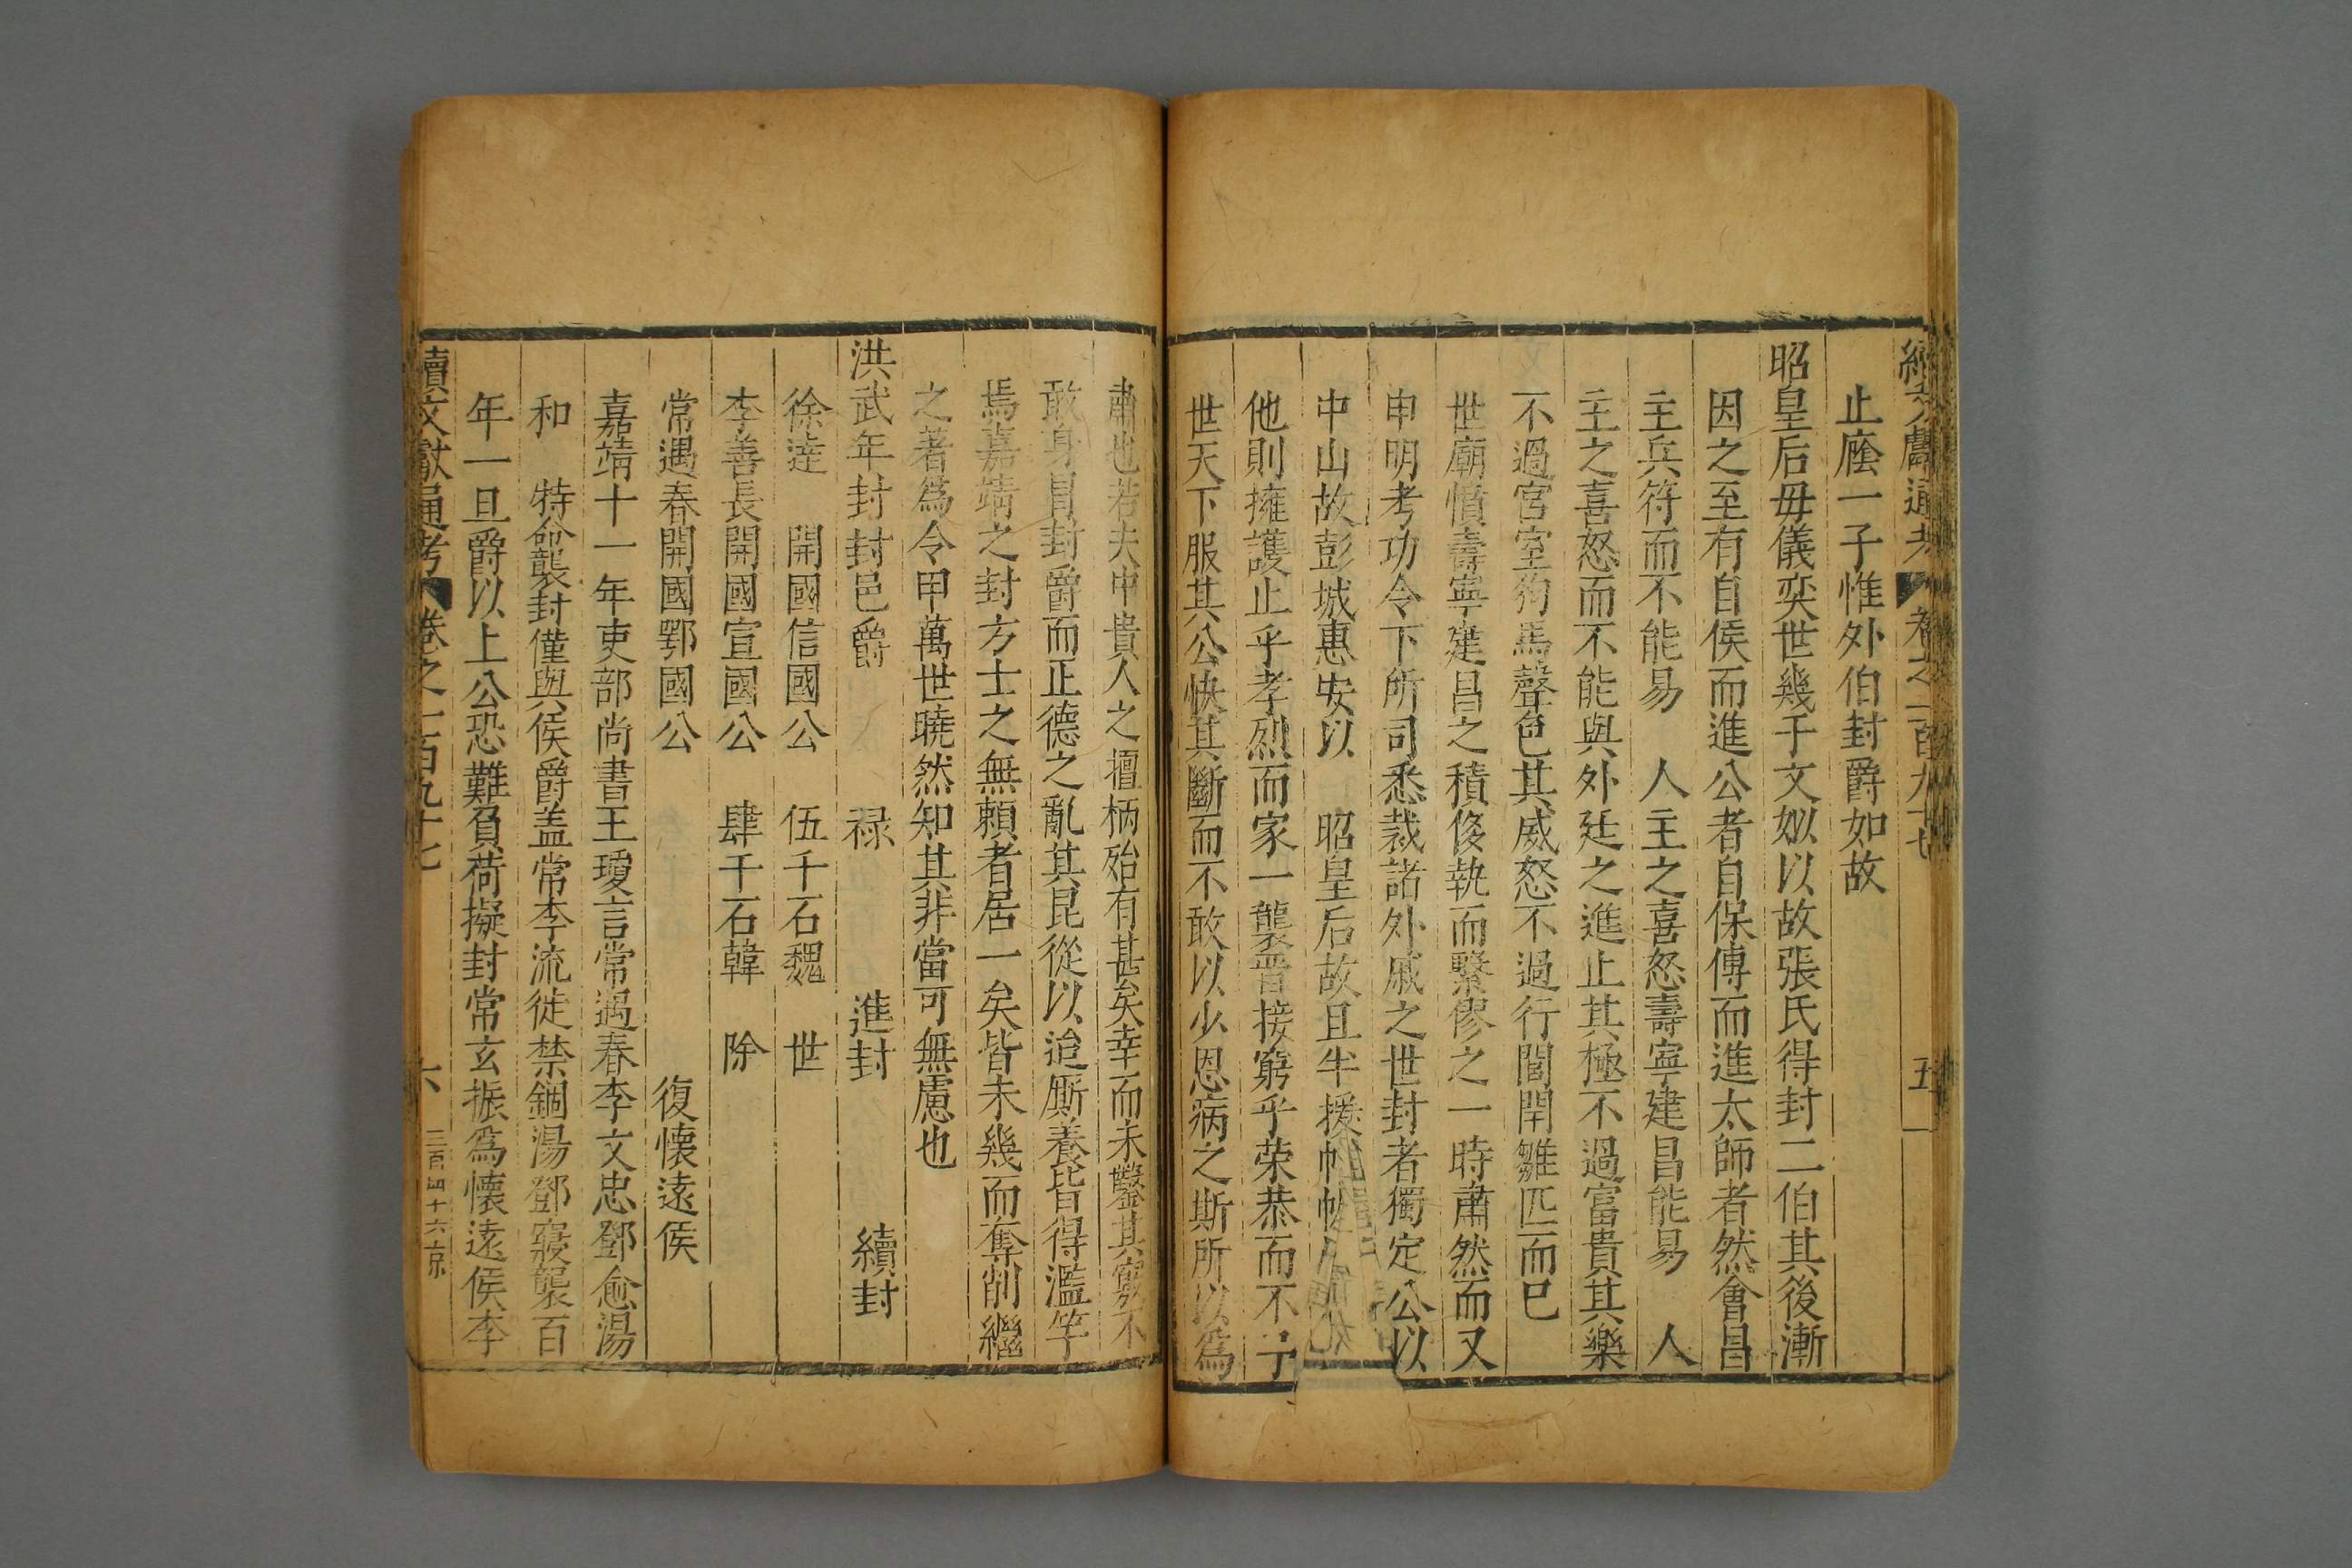 續文獻通考 卷之一百九十七 五
止廕一子惟外伯封爵如故
昭皇后毋儀奕世幾千文姒以故張氏得封二伯其後漸
因之至有自侯而進公者自保傅而進太師者然會昌
主兵符而不能易 人主之喜怒壽寧建昌能易 人
主之喜怒而不能與外廷之進止其極不過富貴其樂
不過宮室狗馬聲色其威怒不過行閭閈雛匹而已
世廟憤壽寧建昌之積侈執而繫僇之一時肅然而又
申明考功令下所司悉裁諸外戚之世封者獨定公以
中山故彭城惠安以 昭皇后故且半援帷幄
他則擁護止乎孝烈而家一襲晋接窮乎荣恭而不予
世天下服其公快其斷而不敢以少恩病之斯所以為
肅也若夫中貴人之擅柄殆有甚矣幸而未鑿其竅不
敢身冒封爵而正德之亂其昆從以洎厮養皆得濫竽
焉嘉靖之封方士之無頼者居一矣皆未幾而奪削繼
之著為令甲萬世曉然知其非當可無慮也
洪武年封封邑爵 禄 進封 續封
徐達 開國信國公 伍千石魏 世
李善長開國宣國公 肆千石韓 除
常遇春開國鄂國公 復懷遠侯
嘉靖十一年吏部尚書王瓊言常遇春李文忠鄧愈湯
和 特命襲封僅與侯爵盖常李流徙禁錮湯鄧寢襲百
年一旦爵以上公恐難負荷擬封常玄振為懷遠侯李
續文獻通考 卷之一百九十七 六 三百四十六京